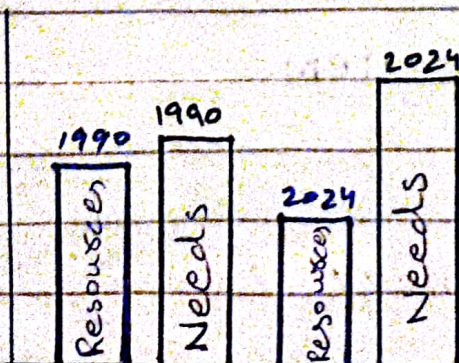 1990
Resources
1990
Needs
2024
Resources
2024
Needs